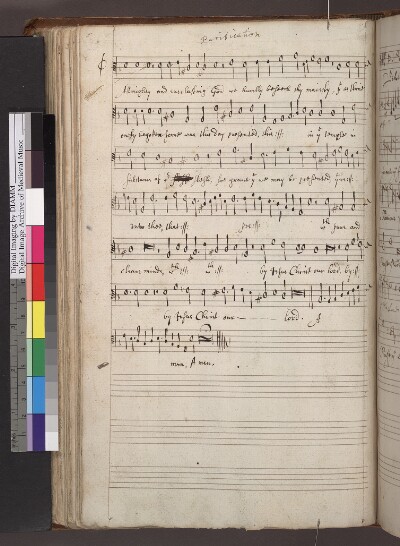 Purification
Almighty and everlasting God we humbly beseech thy maiesty, yt as thine
only begotten sonne was this day presented, this :||: in ye temple in
substance of or flesh, soe graunt yt we may be presented
unto thee, that :||: pre :||: wth pure and
cleane minds, :||: by Jesus Christ our lord, by :||:
by Jesus Christ our lord. A
men, A men.
Digital Imaging by DIAMM
Digital Image Archive of Medieval Music